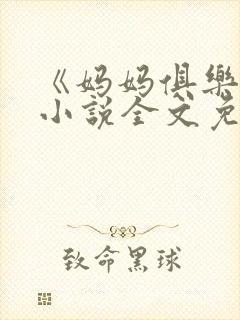 《妈妈俱樂
小說全文免
致命黑球